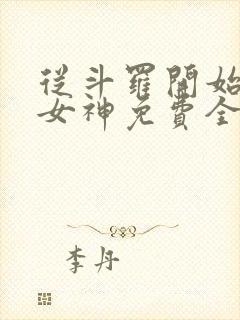 從斗羅開始
女神免費全
李丹